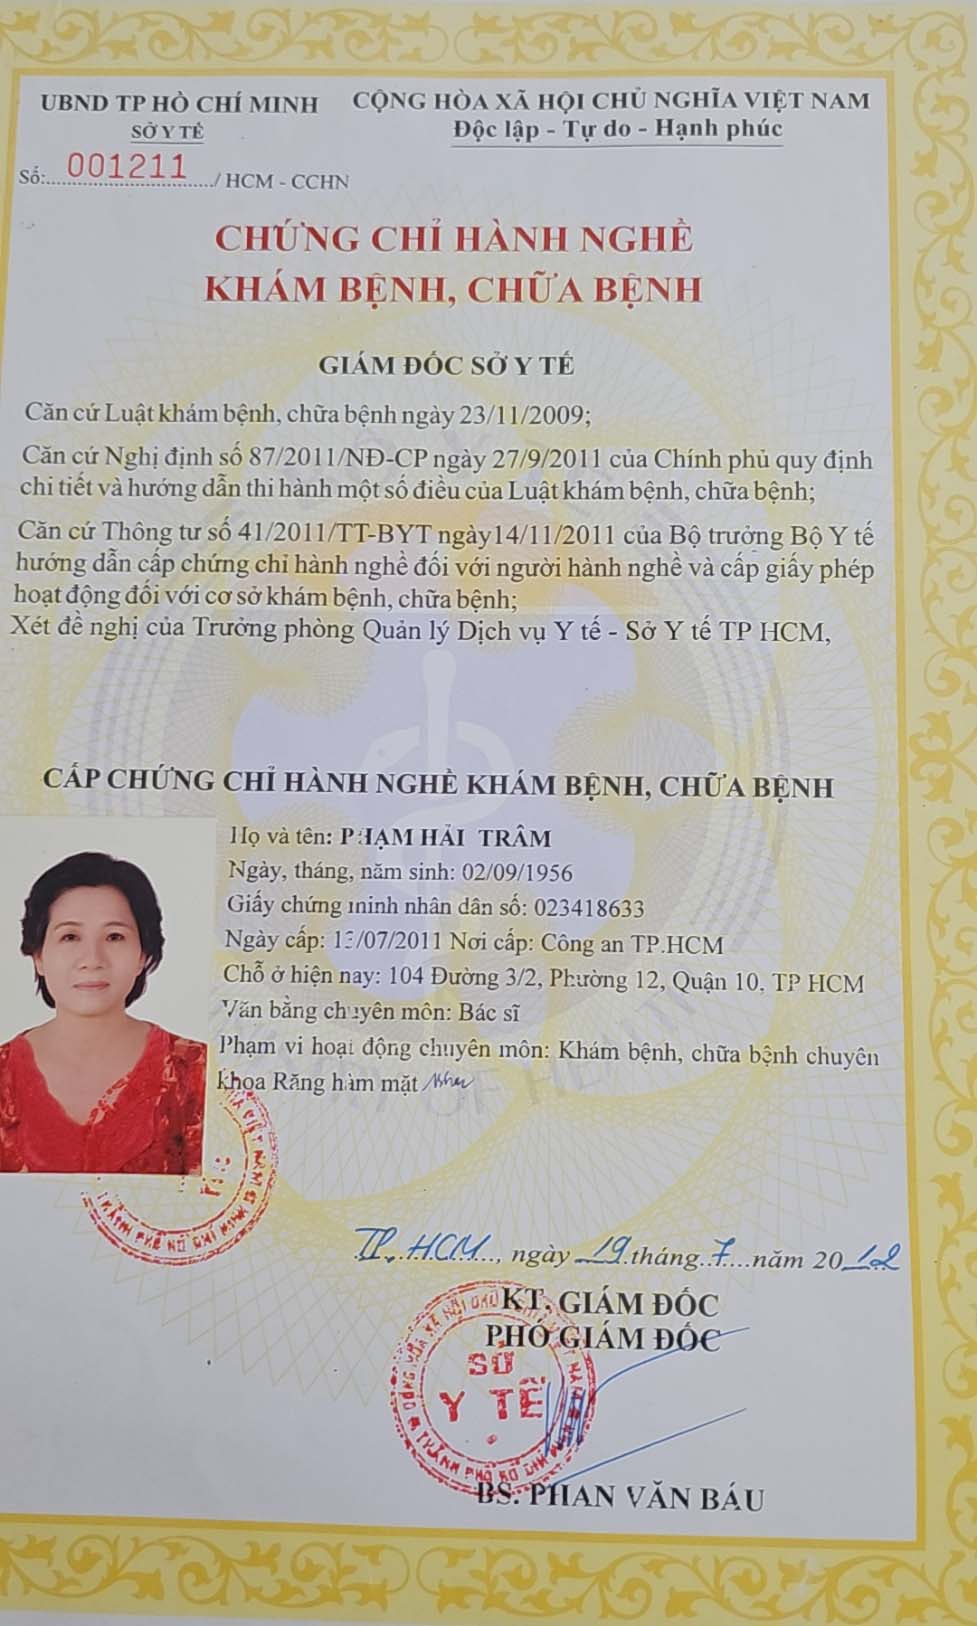 UBND TP HỒ CHÍ MINH
SỞ Y TẾ
Số: 001211 / HCM - CCHN
CỘNG HÒA XÃ HỘI CHỦ NGHĨA VIỆT NAM
Độc lập - Tự do - Hạnh phúc
CHỨNG CHỈ HÀNH NGHỀ
KHÁM BỆNH, CHỮA BỆNH
GIÁM ĐỐC SỞ Y TẾ
Căn cứ Luật khám bệnh, chữa bệnh ngày 23/11/2009;
Căn cứ Nghị định số 87/2011/NĐ-CP ngày 27/9/2011 của Chính phủ quy định
chi tiết và hướng dẫn thi hành một số điều của Luật khám bệnh, chữa bệnh;
Căn cứ Thông tư số 41/2011/TT-BYT ngày14/11/2011 của Bộ trưởng Bộ Y tế
hướng dẫn cấp chứng chỉ hành nghề đối với người hành nghề và cấp giấy phép
hoạt động đối với cơ sở khám bệnh, chữa bệnh;
Xét đề nghị của Trưởng phòng Quản lý Dịch vụ Y tế - Sở Y tế TP HCM,
CẤP CHỨNG CHỈ HÀNH NGHỀ KHÁM BỆNH, CHỮA BỆNH
Họ và tên: PHẠM HẢI TRÂM
Ngày, tháng, năm sinh: 02/09/1956
Giấy chứng minh nhân dân số: 023418633
Ngày cấp: /07/2011 Nơi cấp: Công an TP.HCM
Chỗ ở hiện nay: 104 Đường 3/2, Phường 12, Quận 10, TP HCM
Văn bằng chuyên môn: Bác sĩ
Phạm vi hoạt động chuyên môn: Khám bệnh, chữa bệnh chuyên
khoa Răng hàm mặt
THÀNH PHỐ HỒ CHÍ MINH
TP. HCM, ngày 19 tháng 7 năm 2012
KT. GIÁM ĐỐC
PHÓ GIÁM ĐỐC
SỞ
Y TẾ
THÀNH PHỐ HỒ CHÍ MINH
BS. PHAN VĂN BÁU